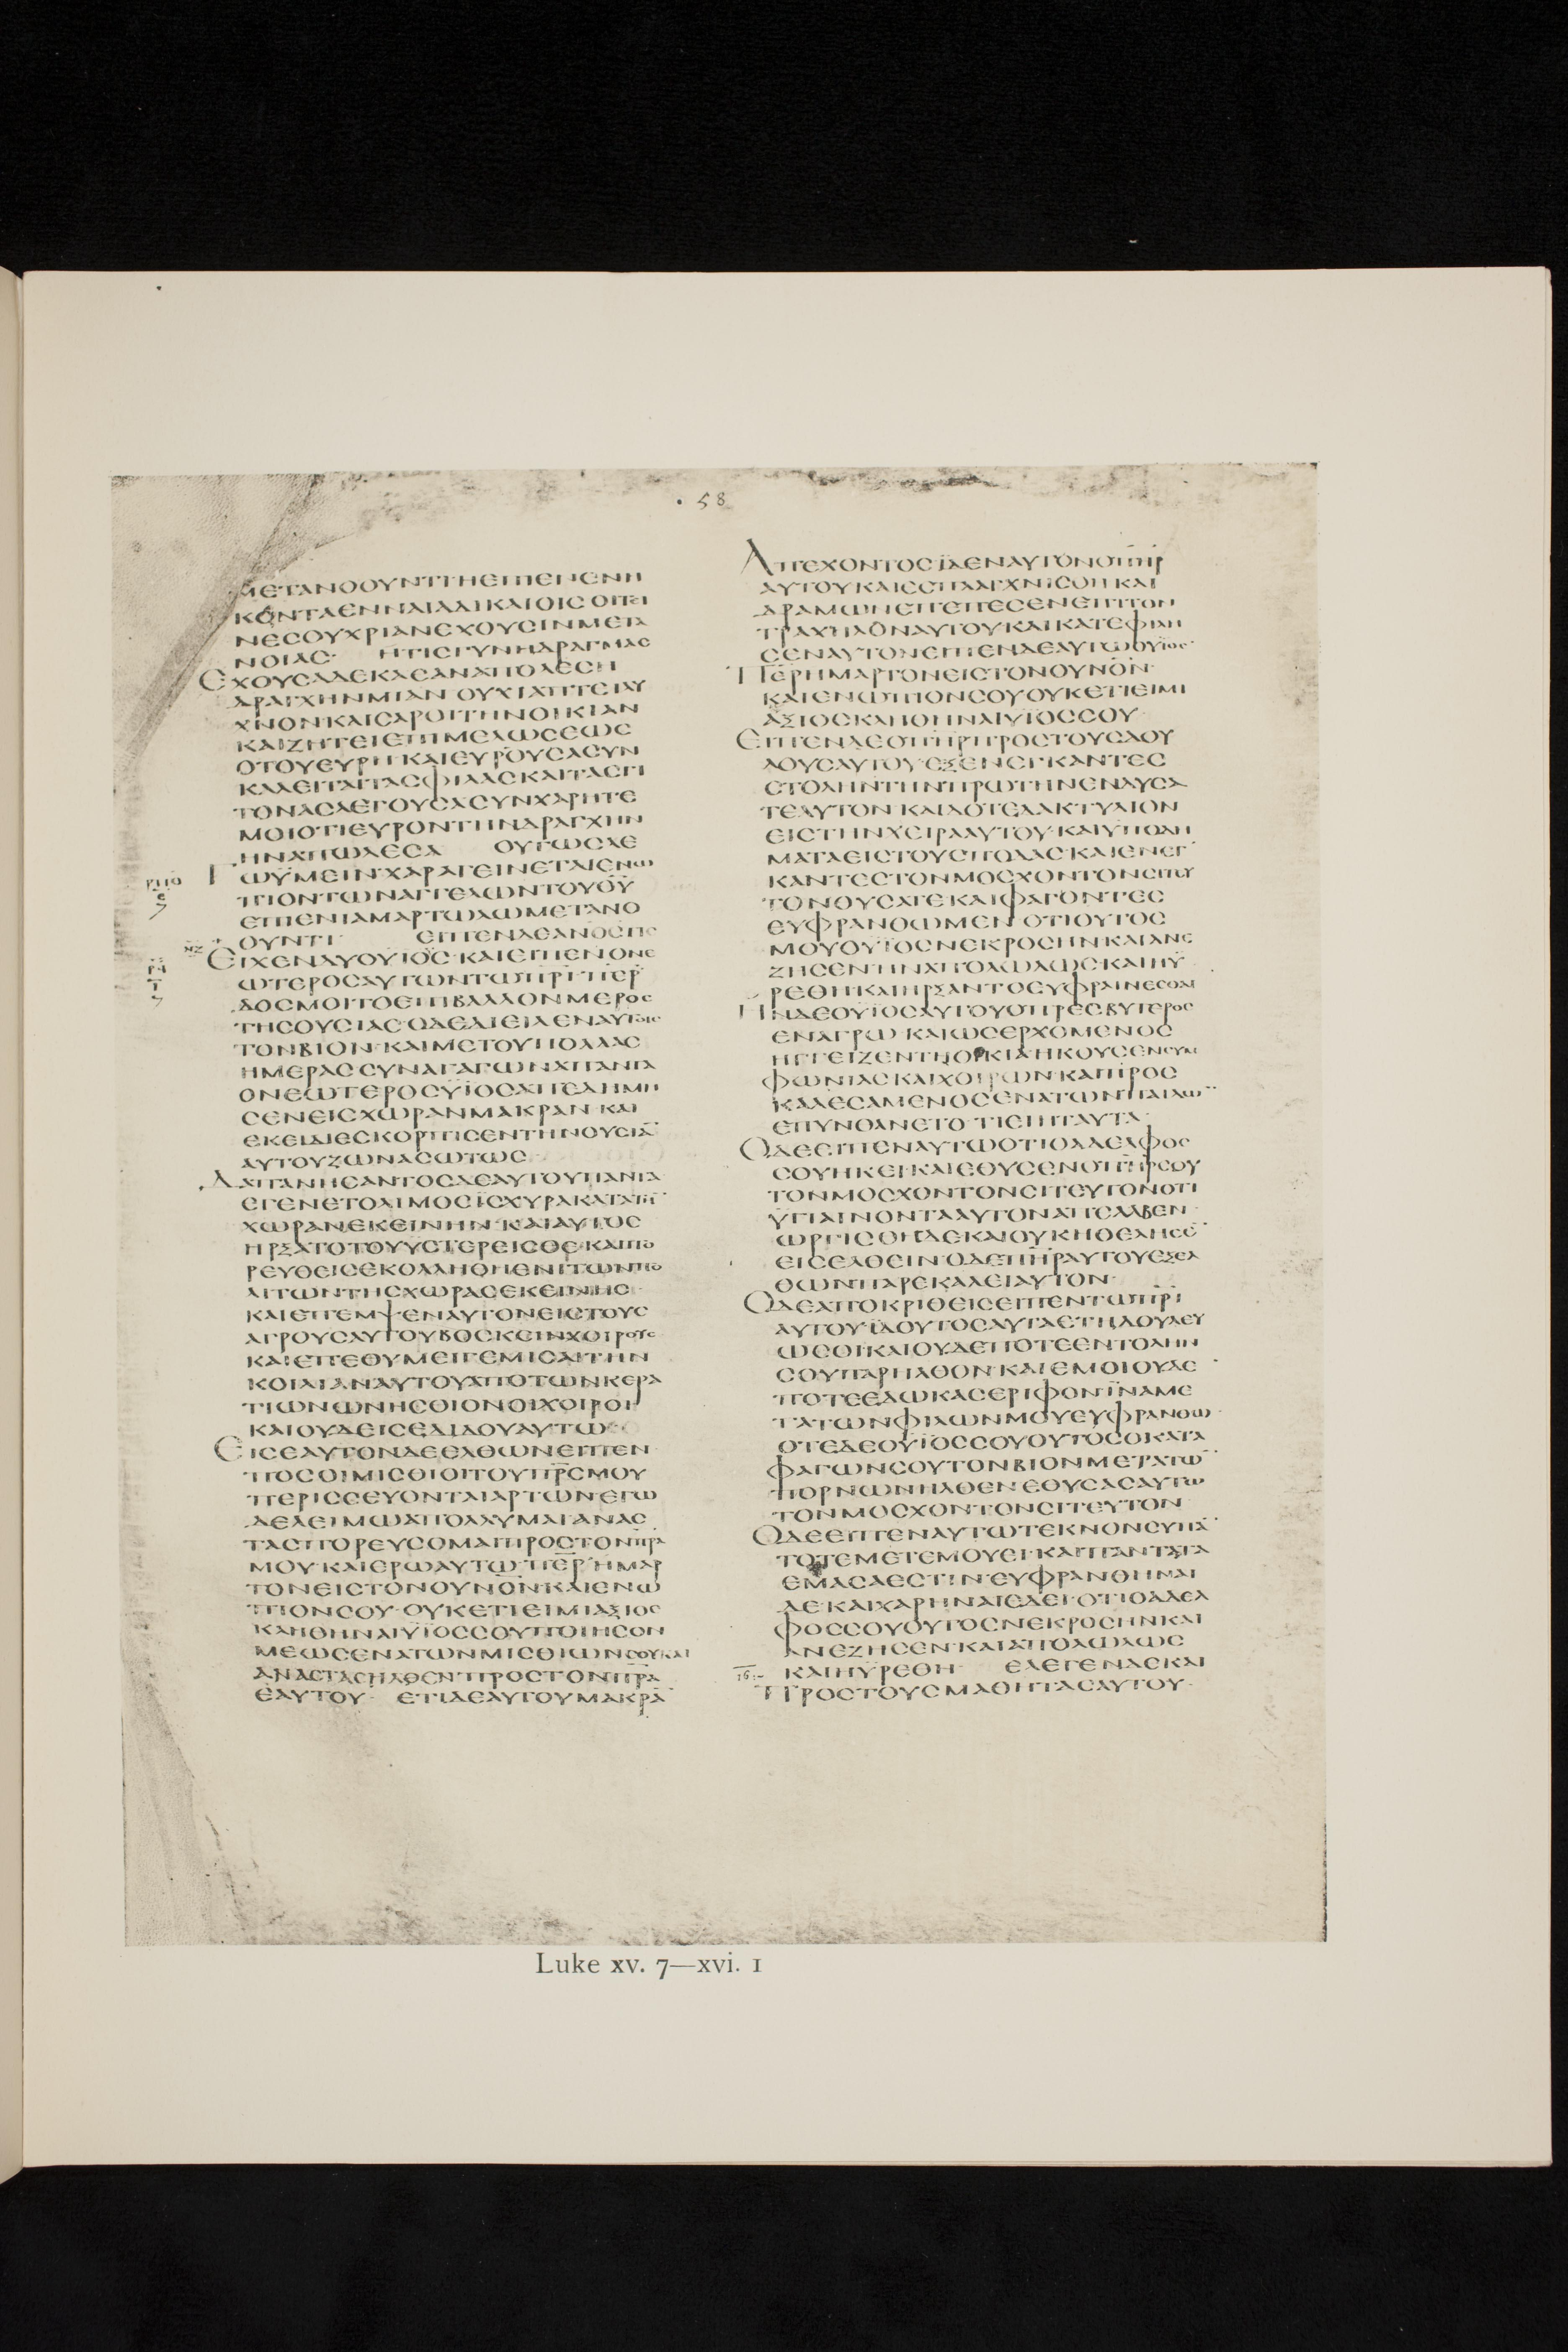 · 58
ΜΕΤΑΝΟΟΥΝΤΙ Η ΕΠΕΝΕΝΗ
ΚΟΝΤΑΕΝΝΑΙΔΙΚΑΙΟΙΣ ΟΙΤΙ
ΝΕСΟΥΧΡΙΑΝΕΧΟΥСΙΝΜΕΤΑ
ΝΟΙΑС· ΗΤΙСΓΥΝΗΔΡΑΓΜΑС
ΕΧΟΥСΑΔΕΚΑΕΑΝΑΠΟΛΕСΗ
ΔΡΑΓΧΗΝΜΙΑΝ ΟΥΧΙΑΠΤΕΙΛΥ
ΧΝΟΝΚΑΙСΑΡΟΙΤΗΝΟΙΚΙΑΝ
ΚΑΙΖΗΤΕΙΕΠΙΜΕΛΩСΕΩС
ΟΤΟΥΕΥΡΗ·ΚΑΙΕΥΡΟΥСΑСΥΝ
ΚΑΛΕΙΤΑΙΤΑСΦΙΛΑСΚΑΙΤΑСΓΙ
ΤΟΝΑСΛΕΓΟΥСΑСΥΝΧΑΡΗΤΕ
ΜΟΙΟΤΙΕΥΡΟΝΤΗΝΔΡΑΓΧΗΝ
ΗΝΑΠΩΛΕСΑ ΟΥΤΩСΛΕ
ΓΩΫΜΕΙΝ·ΧΑΡΑΓΕΙΝΕΤΑΙΕΝΩ
ΠΙΟΝΤΩΝΑΓΓΕΛΩΝΤΟΥΘΥ
ΕΠΙΕΝΙΑΜΑΡΤΩΛΩΜΕΤΑΝΟ
ΟΥΝΤΙ· ΕΙΠΕΝΔΕΑΝΟСΤΙС
ΕΙΧΕΝΔΥΟΥΪΟΥС·ΚΑΙΕΙΠΕΝΟΝΕ
ΩΤΕΡΟСΑΥΤΩΝΤΩΠΡΙ·ΠΕΡ
ΔΟСΜΟΙΤΟΕΠΙΒΑΛΛΟΝΜΕΡΟС
ΤΗСΟΥСΙΑС·ΟΔΕΔΙΕΙΛΕΝΑΥΤΟΙС
ΤΟΝΒΙΟΝ·ΚΑΙΜΕΤΟΥΠΟΛΛΑС
ΗΜΕΡΑССΥΝΑΓΑΓΩΝΑΠΑΝΤΑ
ΟΝΕΩΤΕΡΟСΥΪΟСΑΠΕΔΗΜΗ
СΕΝΕΙСΧΩΡΑΝΜΑΚΡΑΝ·ΚΑΙ
ΕΚΕΙΔΙΕСΚΟΡΠΙСΕΝΤΗΝΟΥСΙΑ̅
ΑΥΤΟΥΖΩΝΑСΩΤΩС
ΔΑΠΑΝΗСΑΝΤΟСΔΕΑΥΤΟΥΠΑΝΤΑ
ΕΓΕΝΕΤΟΛΙΜΟСΪСΧΥΡΑΚΑΤΑΤΗ̅
ΧΩΡΑΝΕΚΕΙΝΗΝ·ΚΑΙΑΥΤΟС
ΗΡΞΑΤΟΤΟΥΥСΤΕΡΕΙСΘΕ·ΚΑΙΠΟ
ΡΕΥΘΕΙСΕΚΟΛΛΗΘΗΕΝΙΤΩΝΠΟ
ΛΙΤΩΝΤΗСΧΩΡΑСΕΚΕΙΝΗС·
ΚΑΙΕΠΕΜΨΕΝΑΥΤΟΝΕΙСΤΟΥС
ΑΓΡΟΥСΑΥΤΟΥΒΟСΚΕΙΝΧΟΙΡΟΥС
ΚΑΙΕΠΕΘΥΜΕΙΓΕΜΙСΑΙΤΗΝ
ΚΟΙΛΙΑΝΑΥΤΟΥΑΠΟΤΩΝΚΕΡΑ
ΤΙΩΝΩΝΗСΘΙΟΝΟΙΧΟΙΡΟΙ
ΚΑΙΟΥΔΕΙСΕΔΙΔΟΥΑΥΤΩ
ΕΙСΕΑΥΤΟΝΔΕΕΛΘΩΝΕΙΠΕΝ
ΠΟСΟΙΜΙСΘΙΟΙΤΟΥΠΡСΜΟΥ
ΠΕΡΙССΕΥΟΝΤΑΙΑΡΤΩΝ·ΕΓΩ
ΔΕΛΕΙΜΩΑΠΟΛΛΥΜΑΙ·ΑΝΑС
ΤΑСΠΟΡΕΥСΟΜΑΙΠΡΟСΤΟΝΠΡΑ
ΜΟΥ·ΚΑΙΕΡΩΑΥΤΩ·ΠΕΡ·ΗΜΑΡ
ΤΟΝΕΙСΤΟΝΟΥΝΟΝ·ΚΑΙΕΝΩ
ΠΙΟΝСΟΥ·ΟΥΚΕΤΙΕΙΜΙΑΞΙΟС
ΚΛΗΘΗΝΑΙΥΪΟССΟΥ·ΠΟΙΗСΟΝ
ΜΕΩСΕΝΑΤΩΝΜΙСΘΙΩΝСΟΥ·ΚΑΙ
ΑΝΑСΤΑСΗΛΘΕΝΠΡΟСΤΟΝΠΡΑ
ΕΑΥΤΟΥ· ΕΤΙΔΕΑΥΤΟΥΜΑΚΡΑ̅
ΑΠΕΧΟΝΤΟСΪΔΕΝΑΥΤΟΝΟΠΗΡ
ΑΥΤΟΥΚΑΙΕСΠΛΑΓΧΝΙСΘΗΚΑΙ
ΔΡΑΜΩΝΕΠΕΠΕСΕΝΕΠΙΤΟΝ
ΤΡΑΧΗΛΟΝΑΥΤΟΥΚΑΙΚΑΤΕΦΙΛΗ
СΕΝΑΥΤΟΝ·ΕΙΠΕΝΔΕΑΥΤΩΟΥΪΟС·
ΠΕΡΗΜΑΡΤΟΝΕΙСΤΟΝΟΥΝΟΝ·
ΚΑΙΕΝΩΠΙΟΝСΟΥΟΥΚΕΤΙΕΙΜΙ
ΑΞΙΟСΚΛΗΘΗΝΑΙΥΪΟССΟΥ·
ΕΙΠΕΝΔΕΟΠΗΡΠΡΟСΤΟΥСΔΟΥ
ΛΟΥСΑΥΤΟΥ·ΕΞΕΝΕΓΚΑΝΤΕС
СΤΟΛΗΝΤΗΝΠΡΩΤΗΝΕΝΔΥСΑ
ΤΕΑΥΤΟΝ·ΚΑΙΔΟΤΕΔΑΚΤΥΛΙΟΝ
ΕΙСΤΗΝΧΕΙΡΑΑΥΤΟΥ·ΚΑΙΥΠΟΔΗ
ΜΑΤΑΕΙСΤΟΥСΠΟΔΑС·ΚΑΙΕΝΕΓ
ΚΑΝΤΕСΤΟΝΜΟСΧΟΝΤΟΝСΙΤΕΥ
ΤΟΝΘΥСΑΤΕΚΑΙΦΑΓΟΝΤΕС
ΕΥΦΡΑΝΘΩΜΕΝ ΟΤΙΟΥΤΟС
ΜΟΥΟΥΪΟСΝΕΚΡΟСΗΝΚΑΙΑΝΕ
ΖΗСΕΝ·ΗΝΑΠΟΛΩΛΩС·ΚΑΙΗΥ
ΡΕΘΗ·ΚΑΙΗΡΞΑΝΤΟΕΥΦΡΑΙΝΕСΘΑΙ
ΗΝΔΕΟΥΪΟСΑΥΤΟΥΟΠΡΕСΒΥΤΕΡΟС
ΕΝΑΓΡΩ·ΚΑΙΩСΕΡΧΟΜΕΝΟС
ΗΓΓΕΙΖΕΝΤΗΟΙΚΙΑΗΚΟΥСΕΝСΥΜ
ΦΩΝΙΑСΚΑΙΧΟΡΩΝ·ΚΑΙΠΡΟС
ΚΑΛΕСΑΜΕΝΟСΕΝΑΤΩΝΠΑΙΔΩ̅
ΕΠΥΝΘΑΝΕΤΟ·ΤΙΕΙΗΤΑΥΤΑ·
ΟΔΕΕΙΠΕΝΑΥΤΩΟΤΙΟΑΔΕΛΦΟС
СΟΥΗΚΕΙ·ΚΑΙΕΘΥСΕΝΟΠΗΡСΟΥ
ΤΟΝΜΟСΧΟΝΤΟΝСΙΤΕΥΤΟΝΟΤΙ
ΥΓΙΑΙΝΟΝΤΑΑΥΤΟΝΑΠΕΛΑΒΕΝ·
ΩΡΓΙСΘΗΔΕΚΑΙΟΥΚΗΘΕΛΗСΕ̅
ΕΙСΕΛΘΕΙΝ·ΟΔΕΠΗΡΑΥΤΟΥΕΞΕΛ
ΘΩΝΠΑΡΕΚΑΛΕΙΑΥΤΟΝ·
ΟΔΕΑΠΟΚΡΙΘΕΙСΕΙΠΕΝΤΩΠΡΙ
ΑΥΤΟΥ·ΪΔΟΥΤΟСΑΥΤΑΕΤΗΔΟΥΛΕΥ
ΩСΟΙ·ΚΑΙΟΥΔΕΠΟΤΕΕΝΤΟΛΗΝ
СΟΥΠΑΡΗΛΘΟΝ·ΚΑΙΕΜΟΙΟΥΔΕ
ΠΟΤΕΕΔΩΚΑСΕΡΙΦΟΝΪΝΑΜΕ
ΤΑΤΩΝΦΙΛΩΝΜΟΥΕΥΦΡΑΝΘΩ
ΟΤΕΔΕΟΥΪΟССΟΥΟΥΤΟСΟΚΑΤΑ
ΦΑΓΩΝСΟΥΤΟΝΒΙΟΝΜΕΤΑΤΩ̅
ΠΟΡΝΩΝΗΛΘΕΝ·ΕΘΥСΑСΑΥΤΩ
ΤΟΝΜΟСΧΟΝΤΟΝСΙΤΕΥΤΟΝ
ΟΔΕΕΙΠΕΝΑΥΤΩΤΕΚΝΟΝСΥΠΑ̅
ΤΟΤΕΜΕΤΕΜΟΥΕΙ·ΚΑΙΠΑΝΤΑΤΑ
ΕΜΑСΑΕСΤΙΝ·ΕΥΦΡΑΝΘΗΝΑΙ
ΔΕ·ΚΑΙΧΑΡΗΝΑΙΕΔΕΙ·ΟΤΙΟΑΔΕΛ
ΦΟССΟΥΟΥΤΟСΝΕΚΡΟСΗΝΚΑΙ
ΑΝΕΖΗСΕΝ·ΚΑΙΑΠΟΛΩΛΩС
ΚΑΙΗΥΡΕΘΗ· ΕΛΕΓΕΝΔΕΚΑΙ
ΠΡΟСΤΟΥСΜΑΘΗΤΑСΑΥΤΟΥ·
Luke xv. 7—xvi. 1